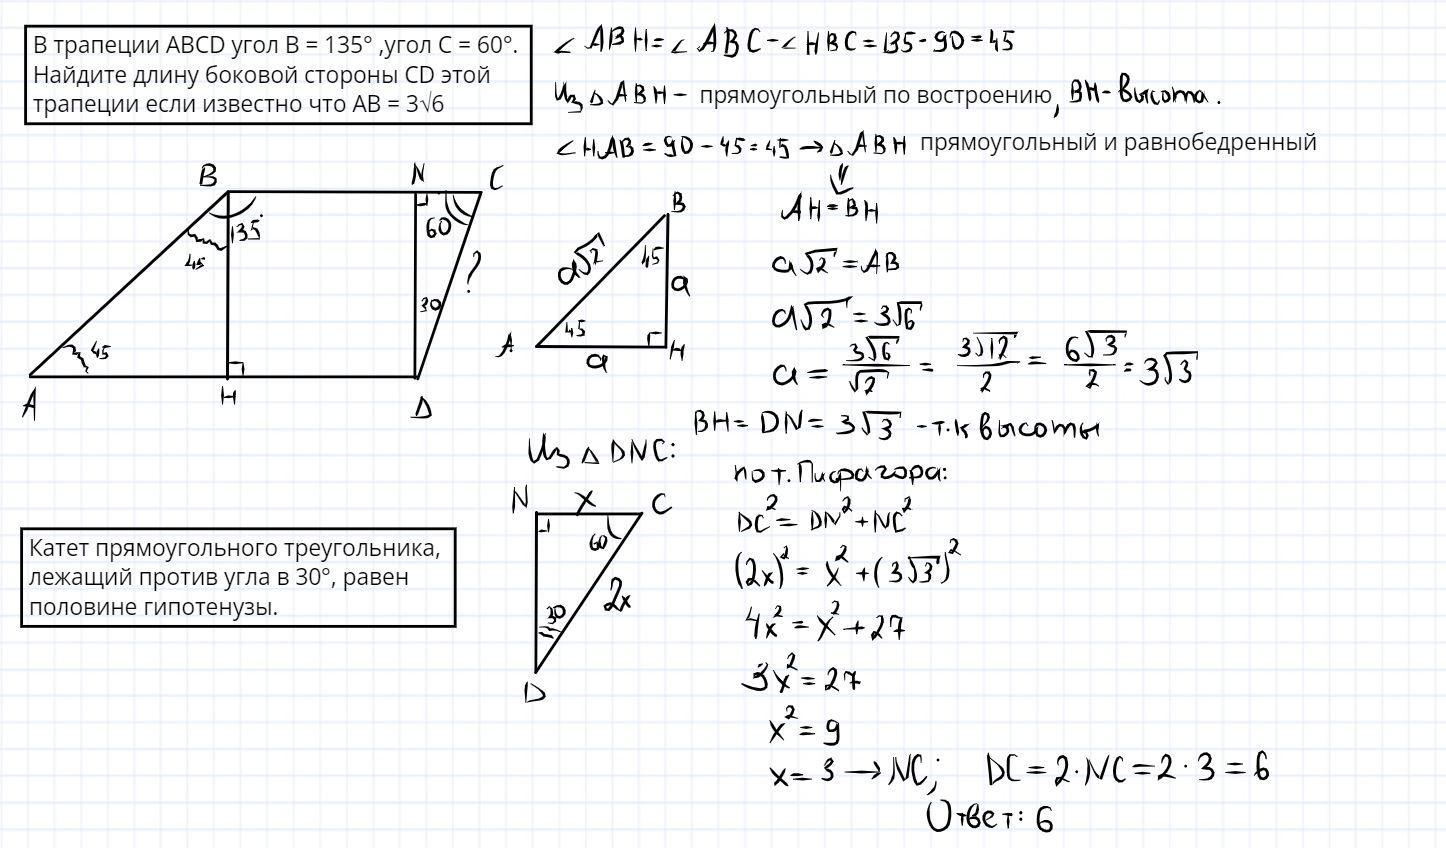 В трапеции ABCD угол B = 135° ,угол C = 60°.
Найдите длину боковой стороны CD этой
трапеции если известно что AB = 3√6
∠ABH = ∠ABC - ∠HBC = 135 - 90 = 45
Из △ABH - прямоугольный по востроению, BH - высота.
∠HAB = 90 - 45 = 45 → △ABH прямоугольный и равнобедренный
⇓
AH = BH
a√2 = AB
a√2 = 3√6
a = 3√6/√2 = 3√12/2 = 6√3/2 = 3√3
B
N
C
135°
60
45
?
30
45
A
H
D
B
a√2
45
a
45
A
a
H
BH = DN = 3√3 - т.к высоты
Из △DNC:
по т. Пифагора:
N
x
C
60
2x
30
D
DC² = DN² + NC²
(2x)² = x² + (3√3)²
4x² = x² + 27
3x² = 27
x² = 9
x = 3 → NC; DC = 2·NC = 2·3 = 6
Ответ: 6
Катет прямоугольного треугольника,
лежащий против угла в 30°, равен
половине гипотенузы.